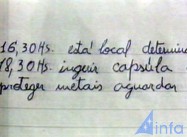 16,30Hs. está local determin
18,30Hs. ingerir capsula
proteger metais aguardar
Ainfo